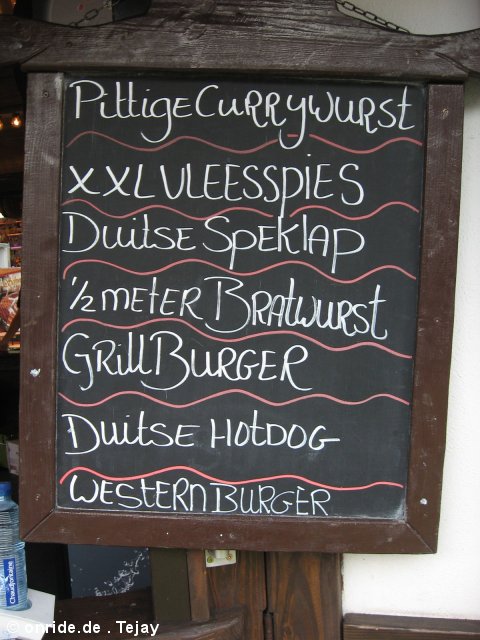 Pittige Currywurst
XXL VLEESSPIES
Duitse Speklap
½ meter Bratwurst
Grill Burger
Duitse Hotdog
Western Burger
Chaudfontaine
© onride.de . Tejay